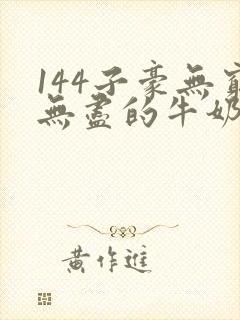 144子豪無窮
無盡的牛奶
黃作進